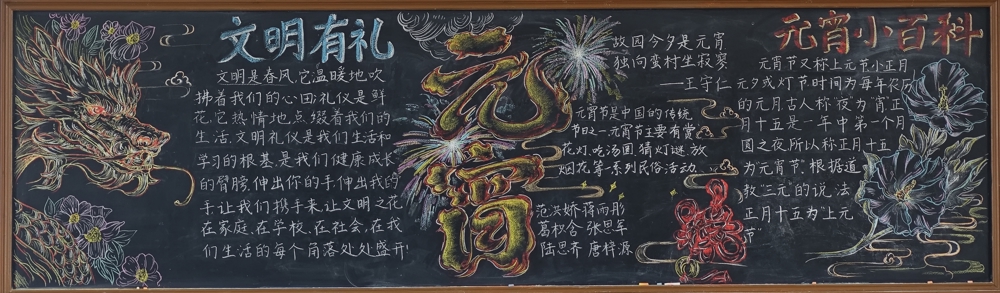 文明有礼
文明是春风,它温暖地吹
拂着我们的心田;礼仪是鲜
花,它热情地点缀着我们的
生活.文明礼仪是我们生活和
学习的根基,是我们健康成长
的臂膀.伸出你的手,伸出我的
手,让我们携手来,让文明之花
在家庭,在学校,在社会,在我
们生活的每个角落处处盛开!
元宵
故园今夕是元宵
独向蛮村坐寂寥
——王守仁
元宵节是中国的传统
节日之一元宵节主要有赏
花灯.吃汤圆.猜灯谜.放
烟花等系列民俗活动.
范洪娇 蒋雨彤
葛权含 张思军
陆思齐 唐梓源
元宵小百科
元宵节又称上元节小正月
元夕或灯节时间为每年农历
的元月古人称"夜"为"宵"正
月十五是一年中第一个月
圆之夜所以称正月十五
为元宵节.根据道
教"三元"的说法
正月十五为"上元
节"